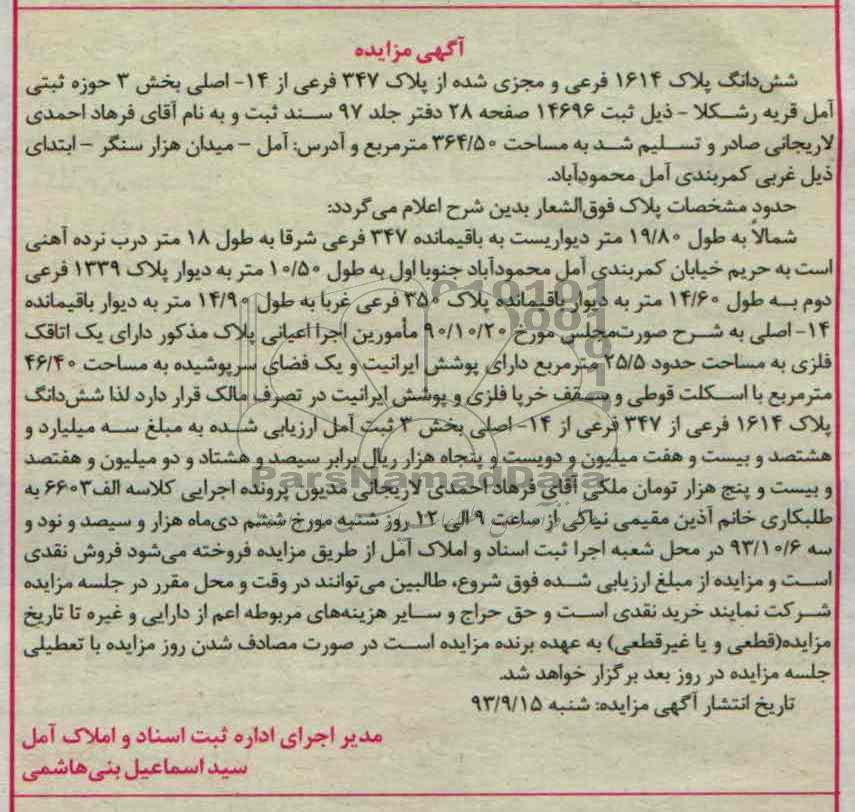 آگهی مزایده
شش‌دانگ پلاک ۱۶۱۴ فرعی و مجزی شده از پلاک ۳۴۷ فرعی از ۱۴- اصلی بخش ۳ حوزه ثبتی
آمل قریه رشکلا - ذیل ثبت ۱۴۶۹۶ صفحه ۲۸ دفتر جلد ۹۷ سند ثبت و به نام آقای فرهاد احمدی
لاریجانی صادر و تسلیم شد به مساحت ۳۶۴/۵۰ مترمربع و آدرس: آمل - میدان هزار سنگر - ابتدای
ذیل غربی کمربندی آمل محمودآباد.
حدود مشخصات پلاک فوق‌الشعار بدین شرح اعلام می‌گردد:
شمالاً به طول ۱۹/۸۰ متر دیواریست به باقیمانده ۳۴۷ فرعی شرقا به طول ۱۸ متر درب نرده آهنی
است به حریم خیابان کمربندی آمل محمودآباد جنوبا اول به طول ۱۰/۵۰ متر به دیوار پلاک ۱۳۳۹ فرعی
دوم به طول ۱۴/۶۰ متر به دیوار باقیمانده پلاک ۳۵۰ فرعی غربا به طول ۱۴/۹۰ متر به دیوار باقیمانده
۱۴- اصلی به شرح صورت‌مجلس مورخ ۹۰/۱۰/۲۰ مأمورین اجرا اعیانی پلاک مذکور دارای یک اتاقک
فلزی به مساحت حدود ۲۵/۵ مترمربع دارای پوشش ایرانیت و یک فضای سرپوشیده به مساحت ۴۶/۴۰
مترمربع با اسکلت قوطی و سقف خرپا فلزی و پوشش ایرانیت در تصرف مالک قرار دارد لذا شش‌دانگ
پلاک ۱۶۱۴ فرعی از ۳۴۷ فرعی از ۱۴- اصلی بخش ۳ ثبت آمل ارزیابی شده به مبلغ سه میلیارد و
هشتصد و بیست و هفت میلیون و دویست و پنجاه هزار ریال برابر سیصد و هشتاد و دو میلیون و هفتصد
و بیست و پنج هزار تومان ملکی آقای فرهاد احمدی لاریجانی مدیون پرونده اجرایی کلاسه الف۶۶۰۳ به
طلبکاری خانم آذین مقیمی نیاکی از ساعت ۹ الی ۱۲ روز شنبه مورخ ششم دی‌ماه هزار و سیصد و نود و
سه ۹۳/۱۰/۶ در محل شعبه اجرا ثبت اسناد و املاک آمل از طریق مزایده فروخته می‌شود فروش نقدی
است و مزایده از مبلغ ارزیابی شده فوق شروع، طالبین می‌توانند در وقت و محل مقرر در جلسه مزایده
شرکت نمایند خرید نقدی است و حق حراج و سایر هزینه‌های مربوطه اعم از دارایی و غیره تا تاریخ
مزایده(قطعی و یا غیرقطعی) به عهده برنده مزایده است در صورت مصادف شدن روز مزایده با تعطیلی
جلسه مزایده در روز بعد برگزار خواهد شد.
تاریخ انتشار آگهی مزایده: شنبه ۹۳/۹/۱۵
مدیر اجرای اداره ثبت اسناد و املاک آمل
سید اسماعیل بنی‌هاشمی
ParsNamadData